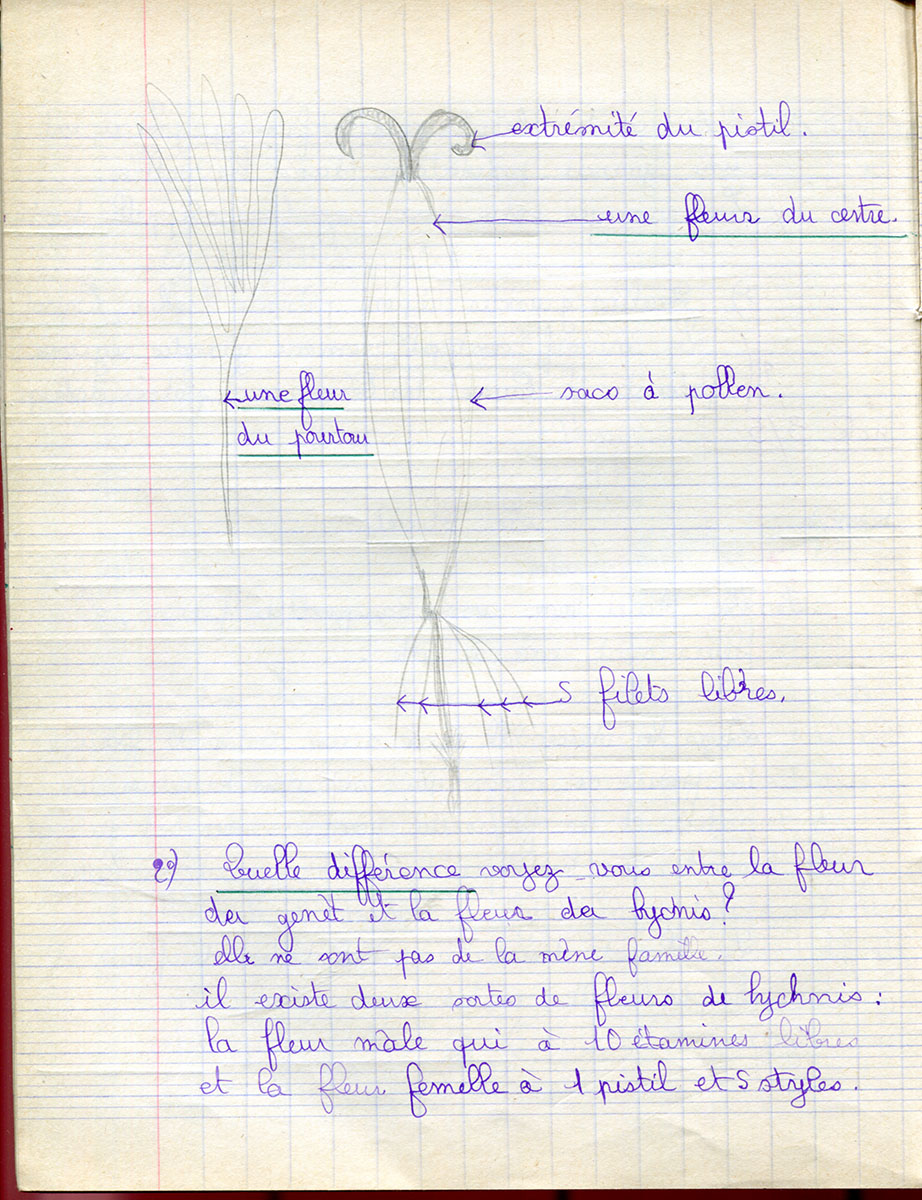 extrémité du pistil.
une fleur du centre.
une fleur
du pourtou
sacs à pollen.
5 filets libres.
2) Quelle différence voyez-vous entre la fleur
du genêt et la fleur du lychnis?
elle ne sont pas de la mène famille.
il existe deux sortes de fleurs de lychnis :
la fleur mâle qui à 10 étamines libres
et la fleur femelle à 1 pistil et 5 styles.